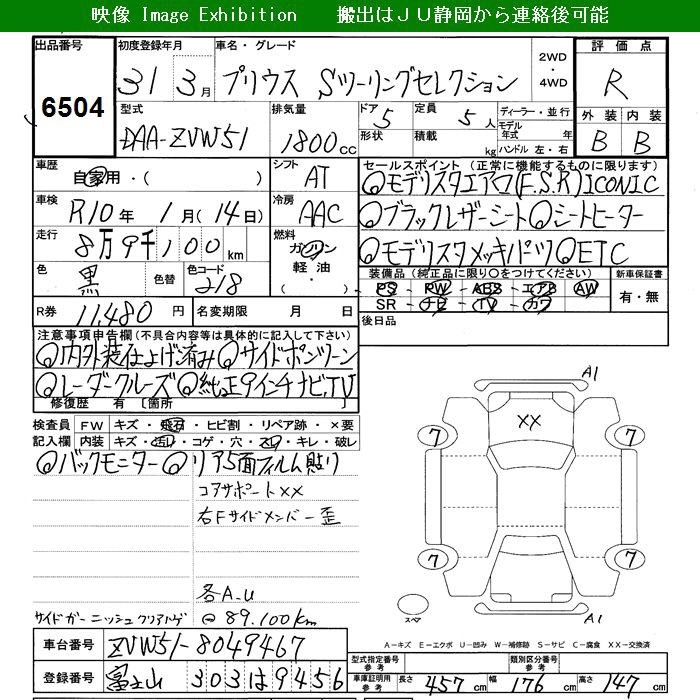 映像 Image Exhibition 搬出はＪＵ静岡から連絡後可能
出品番号
6504
初度登録年月
31 3月
車名・グレード
プリウス Sツーリングセレクション
2WD
・
4WD
評価点
R
型式
DAA-ZVW51
排気量
1800cc
ドア 5
定員 5人
形状
積載 kg
ディーラー・並行
モデル年式 年
ハンドル 左・右
外装 内装
B B
車歴
自家用・( )
シフト
AT
セールスポイント（正常に機能するものに限ります）
◎モデリスタエアロ(F.S.R)ICONIC
◎ブラックレザーシート◎シートヒーター
◎モデリスタメッキパーツ◎ETC
車検
R10年 1月(14日)
冷房
AAC
走行
8万9千100km
燃料
ガソリン
軽油・
( )
色
黒
色替
色コード
218
装備品（純正品に限り○をつけてください）
PS・PW・ABS・エアB・AW
SR・ナビ・TV・カワ
新車保証書
有・無
R券 11,480円
名変期限 月 日
後日品
注意事項申告欄(不具合内容等は具体的に記入して下さい)
◎内外装仕上げ済み◎サイドポンツーン
◎レーダークルーズ◎純正9インチナビ,TV
修復歴 有 〔箇所 〕
検査員記入欄
FW キズ・飛石・ヒビ割・リペア跡・×要
内装 キズ・汚れ・コゲ・穴・スレ・キレ・破レ
◎バックモニター◎リア5面フィルム貼り
コアサポートXX
右Fサイドメンバー歪
各A.U
サイドガーニッシュクリアハゲ
@89.100km
A1
XX
7 7
7 7
A1
スペア
A－キズ E－エクボ U－凹み W－補修跡 S－サビ C－腐食 XX－交換済
車台番号
ZVW51-8049467
登録番号
富士山 303は9456
型式指定番号
参考
類別区分番号
参考
車庫証明用
参考
長さ 457cm
幅 176cm
高さ 147cm